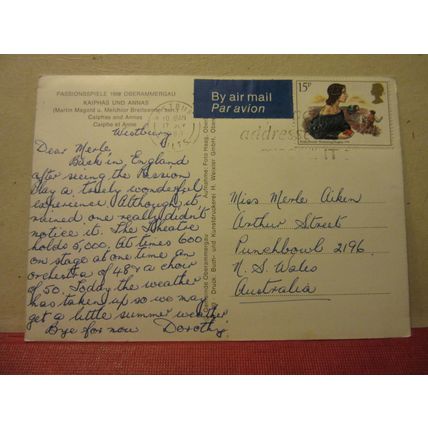 PASSIONSSPIELE 1980 OBERAMMERGAU
KAIPHAS UND ANNAS
(Martin Magold u. Melchior Breitsamter sen.)
Caiphas and Annas
Caiphe et Anne
Westbury
Dear Merle
Back in England
after seeing the Passion
Play a truly wonderful
experience. Although it
rained one really didn't
notice it. The theatre
holds 5,000. At times 600
on stage at one time an
orchestra of 48 & a choir
of 50. Today the weather
has taken up so we may
get a little summer weather
Bye for now Dorothy
Gemeinde Oberammergau Aufnahme Foto Haag,
Druck Buch- und Kunstdruckerei H. Weixler GmbH,
By air mail
Par avion
15P
address
Miss Merle Aiken
Arthur Street
Punchbowl 2196.
N. S. Wales
Australia